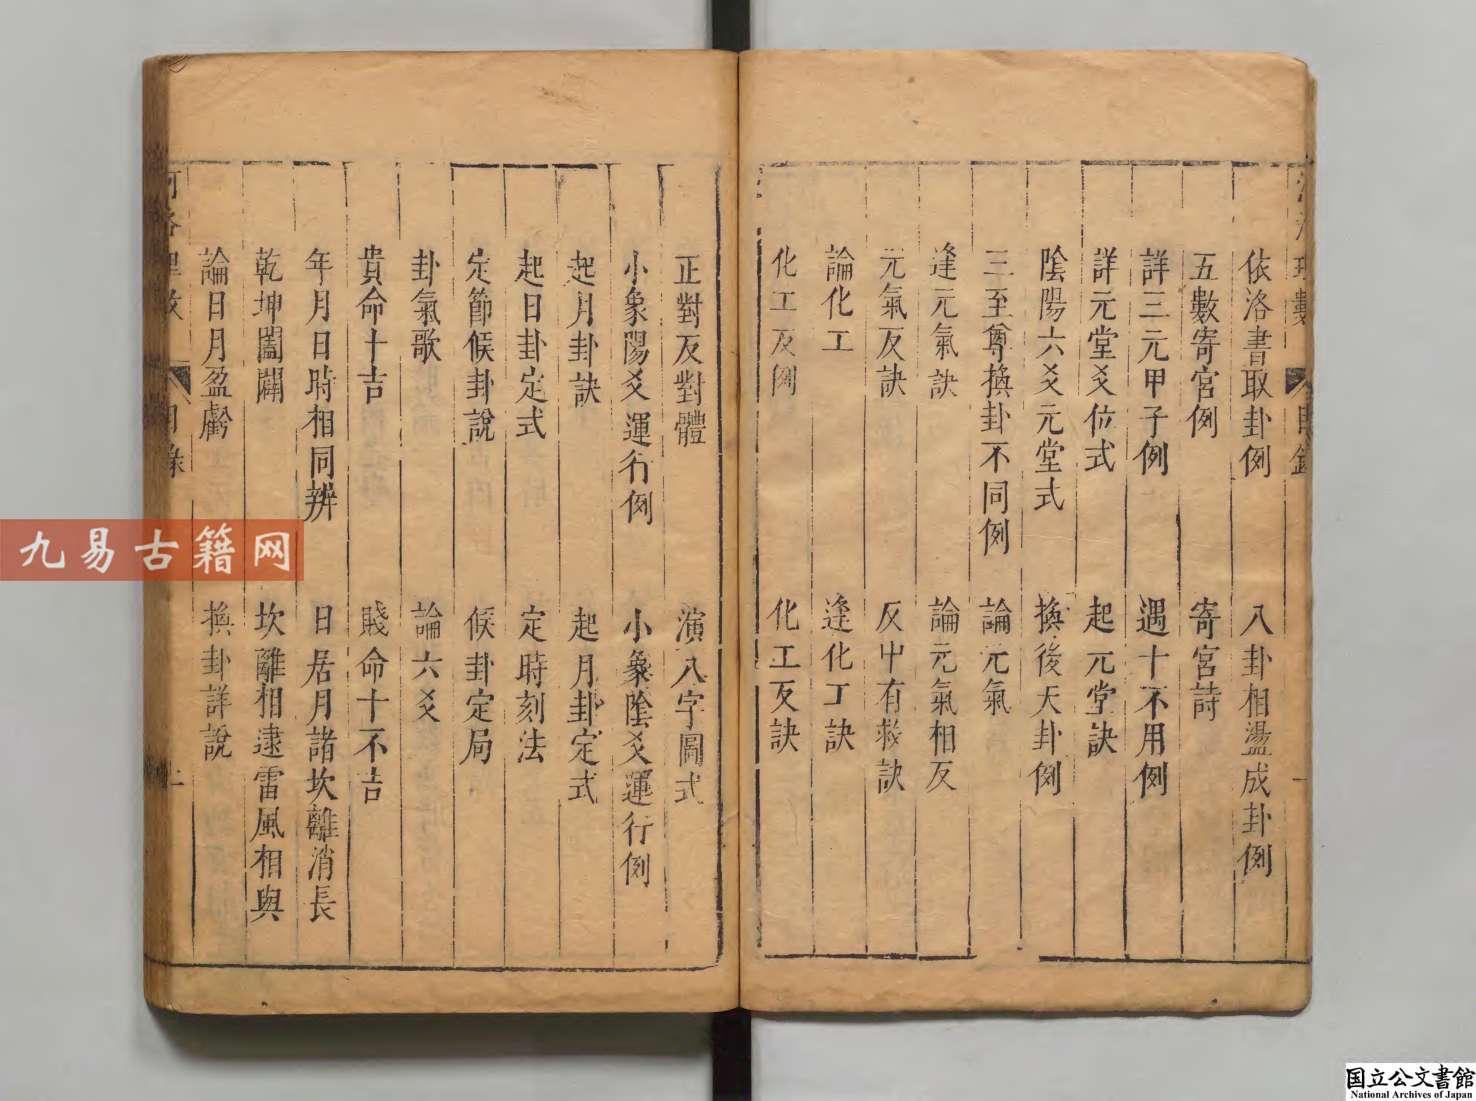 依洛書取卦例　八卦相盪成卦例
五數寄宮例　寄宮詩
詳三元甲子例　遇十不用例
詳元堂爻位式　起元堂訣
陰陽六爻元堂式　換後天卦例
三至尊換卦不同例　論元氣
逢元氣訣　論元氣相反
元氣反訣　反中有救訣
論化工　逢化工訣
化工反例　化工反訣
正對反對體　演八字圖式
小象陽爻運行例　小象陰爻運行例
起月卦訣　起月卦定式
起日卦定式　定時刻法
定節候卦說　候卦定局
卦氣歌　論六爻
貴命十吉　賤命十不吉
年月日時相同辨　日居月諸坎離消長
乾坤闔闢　坎離相逮雷風相與
論日月盈虧　換卦詳說
九易古籍网
国立公文書館
National Archives of Japan